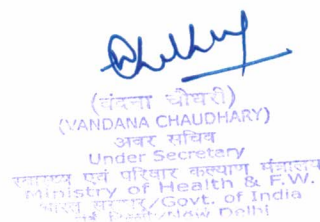 (वंदना चौधरी)
(VANDANA CHAUDHARY)
अवर सचिव
Under Secretary
स्वास्थ्य एवं परिवार कल्याण मंत्रालय
Ministry of Health & F.W.
भारत सरकार/Govt. of India
New Delhi